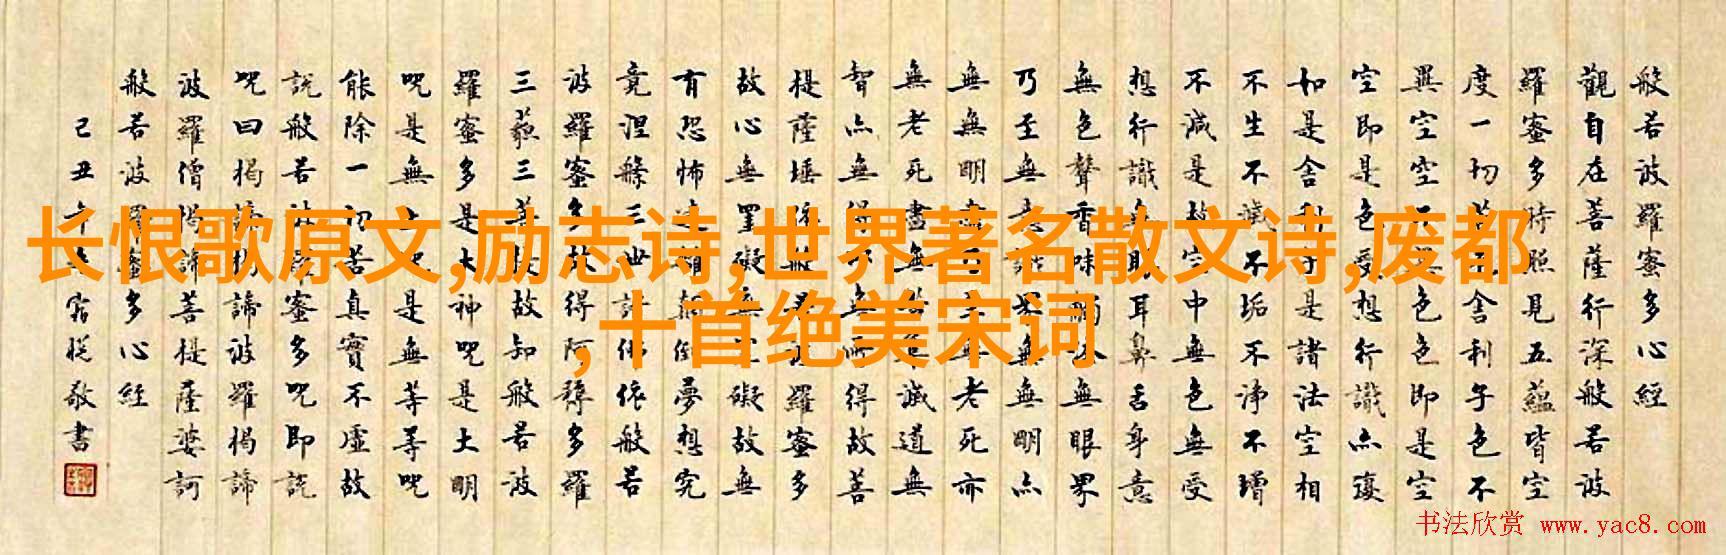 般若波羅蜜多心經
觀自在菩薩行深般若波
羅蜜多時照見五蘊皆空
度一切苦厄舍利子色不
異空空不異色色即是空
空即是色受想行識亦復
如是舍利子是諸法空相
不生不滅不垢不淨不增
不減是故空中無色無受
想行識無眼耳鼻舌身意
無色聲香味觸法無眼界
乃至無意識界無無明亦
無無明盡乃至無老死亦
無老死盡無苦集滅道無
智亦無得以無所得故菩
提薩埵依般若波羅蜜多
故心無罣礙無罣礙故無
有恐怖遠離顛倒夢想究
竟涅槃三世諸佛依般若
波羅蜜多故得阿耨多羅
三藐三菩提故知般若波
羅蜜多是大神咒是大明
咒是無上咒是無等等咒
能除一切苦真實不虛故
說般若波羅蜜多咒即說
咒曰揭諦揭諦波羅揭諦
波羅僧揭諦菩提薩婆訶
般若波羅蜜多心經
己丑年敬書
长恨歌原文,励志诗,世界著名散文诗,废都
,十首绝美宋词
书法欣赏 www.yac8.com